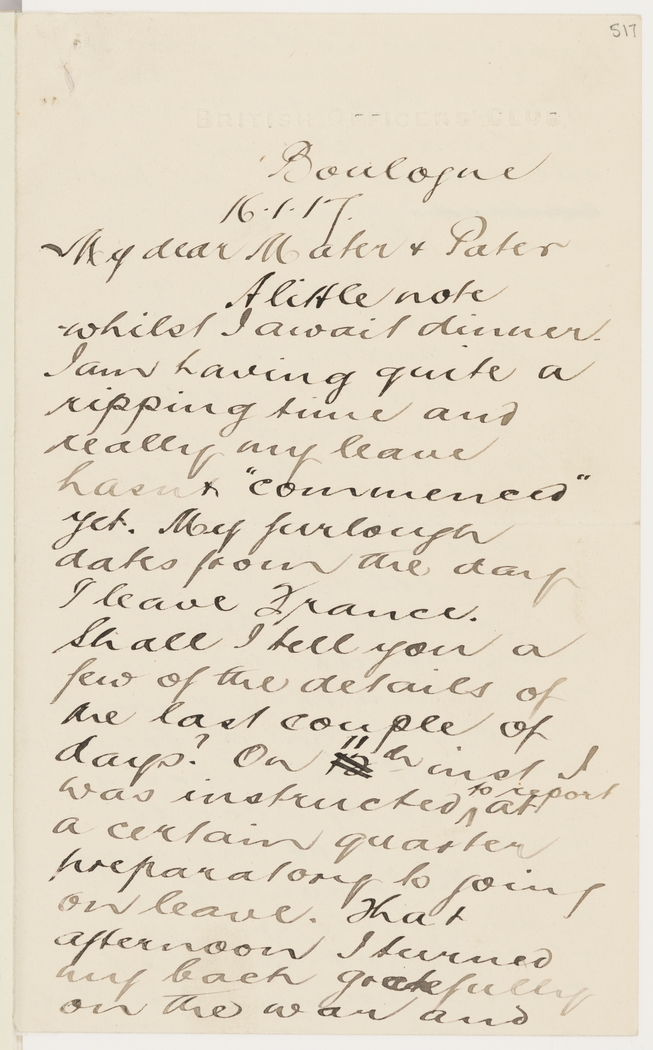 517
BRITISH OFFICERS' CLUB
Boulogne
16.1.17.
My dear Mater & Pater
A little note
whilst I await dinner.
I am having quite a
ripping time and
really my leave
hasnt "commenced"
yet. My furlough
dates from the day
I leave France.
Shall I tell you a
few of the details of
the last couple of
days? On 11th inst I
was instructed to report at
a certain quarter
preparatory to going
on leave. That
afternoon I turned
my back gratefully
on the war and